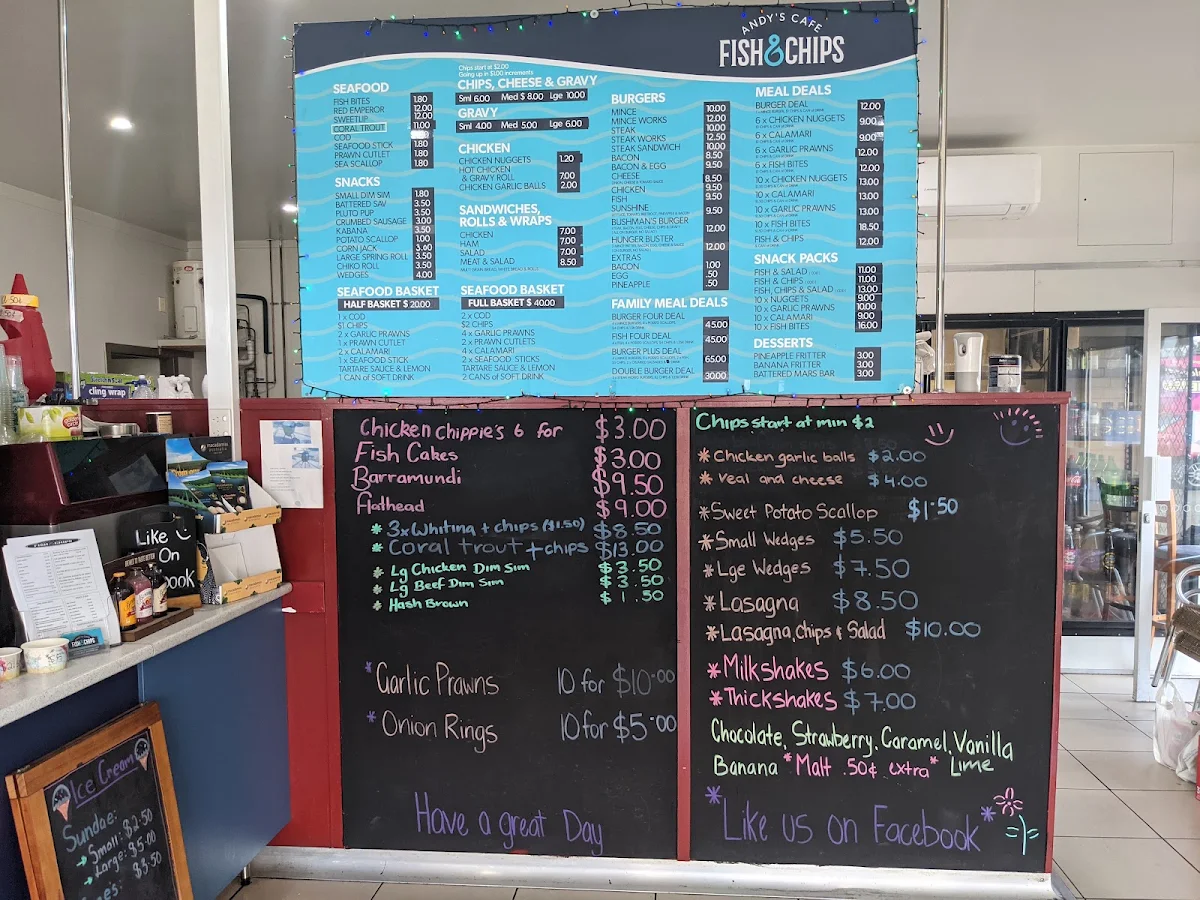 ANDY'S CAFE
FISH & CHIPS
SEAFOOD
FISH BITES 1.80
RED EMPEROR 12.00
SWEETLIP 12.00
CORAL TROUT 11.00
COD
SEAFOOD STICK 1.80
PRAWN CUTLET 1.80
SEA SCALLOP 1.80
SNACKS
SMALL DIM SIM 1.80
BATTERED SAV 3.50
PLUTO PUP 3.50
CRUMBED SAUSAGE 3.00
KABANA 3.50
POTATO SCALLOP 1.00
CORN JACK 3.60
LARGE SPRING ROLL 3.50
CHIKO ROLL 3.50
WEDGES 4.00
SEAFOOD BASKET
HALF BASKET $ 20.00
1 x COD
$1 CHIPS
2 x GARLIC PRAWNS
1 x PRAWN CUTLET
2 x CALAMARI
1 x SEAFOOD STICK
TARTARE SAUCE & LEMON
1 CAN of SOFT DRINK
Chips start at $2.00
Going up in $1.00 increments
CHIPS, CHEESE & GRAVY
Sml 6.00 Med $ 8.00 Lge 10.00
GRAVY
Sml 4.00 Med 5.00 Lge 6.00
CHICKEN
CHICKEN NUGGETS 1.20
HOT CHICKEN
& GRAVY ROLL 7.00
CHICKEN GARLIC BALLS 2.00
SANDWICHES,
ROLLS & WRAPS
CHICKEN 7.00
HAM 7.00
SALAD 7.00
MEAT & SALAD 8.50
SEAFOOD BASKET
FULL BASKET $ 40.00
2 x COD
$2 CHIPS
4 x GARLIC PRAWNS
2 x PRAWN CUTLETS
4 x CALAMARI
2 x SEAFOOD STICKS
TARTARE SAUCE & LEMON
2 CANS of SOFT DRINK
BURGERS
MINCE 10.00
MINCE WORKS 12.00
STEAK 10.00
STEAK WORKS 12.50
STEAK SANDWICH 10.00
BACON 8.50
BACON & EGG 9.50
CHEESE 8.50
CHICKEN 9.50
FISH 9.50
SUNSHINE 9.50
BUSHMAN'S BURGER 12.00
HUNGER BUSTER 12.00
EXTRAS
BACON 1.00
EGG .50
PINEAPPLE .50
FAMILY MEAL DEALS
BURGER FOUR DEAL 45.00
FISH FOUR DEAL 45.00
BURGER PLUS DEAL 65.00
DOUBLE BURGER DEAL 30.00
MEAL DEALS
BURGER DEAL 12.00
6 x CHICKEN NUGGETS 9.00
6 x CALAMARI 9.00
6 x GARLIC PRAWNS 12.00
6 x FISH BITES 12.00
10 x CHICKEN NUGGETS 13.00
10 x CALAMARI 13.00
10 x GARLIC PRAWNS 13.00
10 x FISH BITES 18.50
FISH & CHIPS 12.00
SNACK PACKS
FISH & SALAD 11.00
FISH & CHIPS 11.00
FISH, CHIPS & SALAD 13.00
10 x NUGGETS 9.00
10 x GARLIC PRAWNS 10.00
10 x CALAMARI 9.00
10 x FISH BITES 16.00
DESSERTS
PINEAPPLE FRITTER 3.00
BANANA FRITTER 3.00
BATTERED MARS BAR 3.00
Chicken chippie's 6 for $3.00
Fish Cakes $3.00
Barramundi $9.50
Flathead $9.00
* 3x Whiting + chips ($1.50) $8.50
* Coral trout + chips $13.00
* Lg Chicken Dim Sim $3.50
* Lg Beef Dim Sim $3.50
* Hash Brown $1.50
* Garlic Prawns 10 for $10.00
* Onion Rings 10 for $5.00
Have a great Day
Chips start at min $2
* Chicken garlic balls $2.00
* Veal and cheese $4.00
* Sweet Potato Scallop $1.50
* Small Wedges $5.50
* Lge Wedges $7.50
* Lasagna $8.50
* Lasagna, Chips & Salad $10.00
* Milkshakes $6.00
* Thickshakes $7.00
Chocolate, Strawberry, Caramel, Vanilla
Banana *Malt .50¢ extra* Lime
* Like us on Facebook *
cling wrap
Like
On
book
FISH & CHIPS
Ice Cream
Sundae:
→ Small: $2.50
→ Large: $5.00
$3.50